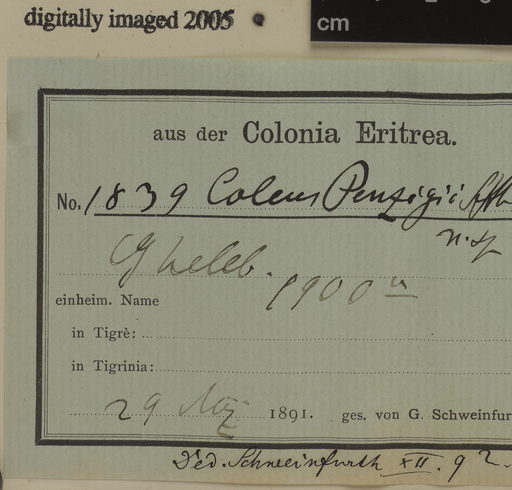 digitally imaged 2005
cm
aus der Colonia Eritrea.
No. 1839 Coleus Penzigii
n. sp
Gheleb. 1900 m
einheim. Name
in Tigrè:
in Tigrinia:
29 März 1891. ges. von G. Schweinfur
Ded. Schweinfurth XII. 92.